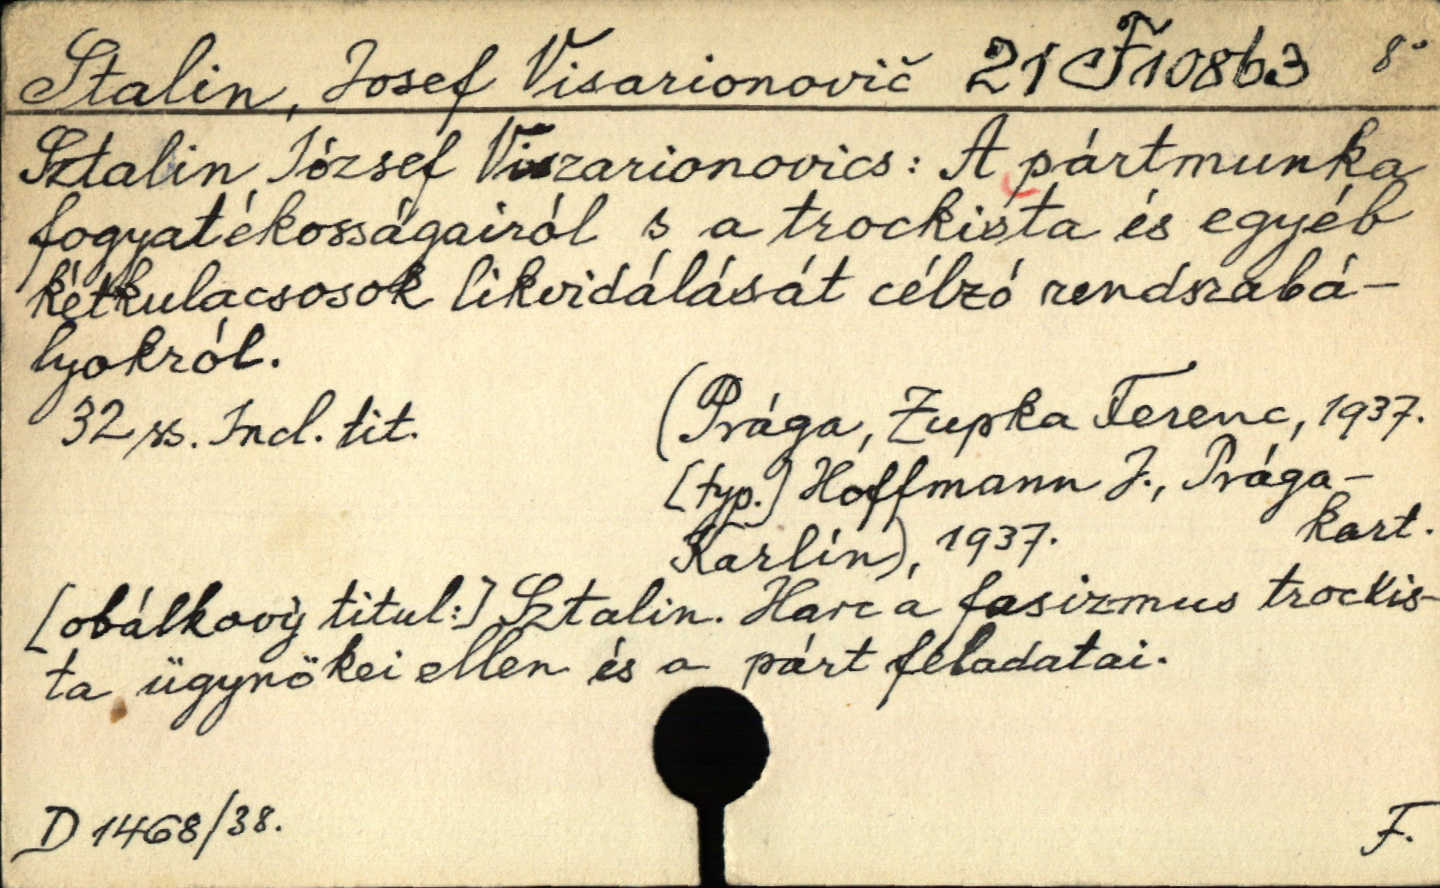 Stalin, Josef Visarionovič 21 F10863 8°
Sztalin József Viszarionovics: A pártmunka
fogyatékosságairól s a trockista és egyéb
kétkulacsosok likvidálását célzó rendszabá-
lyokról.
32 ss. Incl. tit.
(Prága, Zupka Ferenc, 1937.
[typ.] Hoffmann J., Prága-
Karlín), 1937. kart.
[obálkový titul:] Sztalin. Harc a fasizmus trockis-
ta ügynökei ellen és a párt feladatai.
D 1468/38. F.